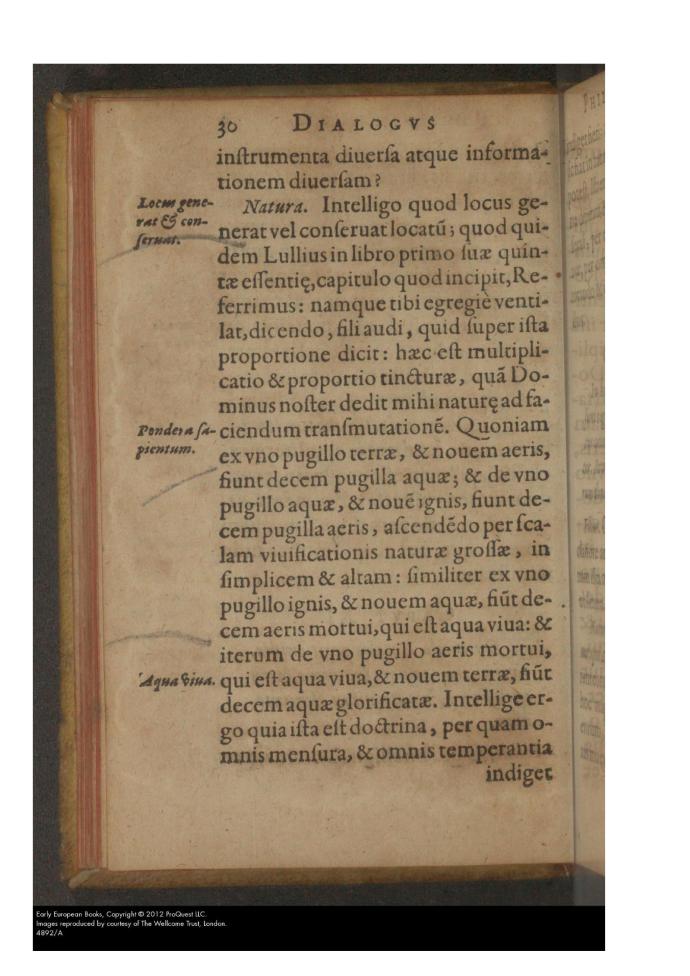 30 DIALOGVS
inſtrumenta diuerſa atque informa-
tionem diuerſam?
Locus gene-
rat & con-
ſeruat.
Natura. Intelligo quod locus ge-
nerat vel conſeruat locatū; quod qui-
dem Lullius in libro primo ſuæ quin-
tæ eſſentię, capitulo quod incipit, Re-
ferrimus: namque tibi egregiè venti-
lat, dicendo, fili audi, quid ſuper iſta
proportione dicit: hæc eſt multipli-
catio & proportio tincturæ, quā Do-
minus noſter dedit mihi naturę ad fa-
Pondera ſa-
pientum.
ciendum tranſmutationē. Quoniam
ex vno pugillo terræ, & nouem aeris,
fiunt decem pugilla aquæ; & de vno
pugillo aquæ, & nouē ignis, fiunt de-
cem pugilla aeris, aſcendēdo per ſca-
lam viuificationis naturæ groſſæ, in
ſimplicem & altam: ſimiliter ex vno
pugillo ignis, & nouem aquæ, fiūt de-
cem aeris mortui, qui eſt aqua viua: &
iterum de vno pugillo aeris mortui,
Aqua viua.
qui eſt aqua viua, & nouem terræ, fiūt
decem aquæ glorificatæ. Intellige er-
go quia iſta eſt doctrina, per quam o-
mnis menſura, & omnis temperantia
indiget
Early European Books, Copyright © 2012 ProQuest LLC.
Images reproduced by courtesy of The Wellcome Trust, London.
4892/A